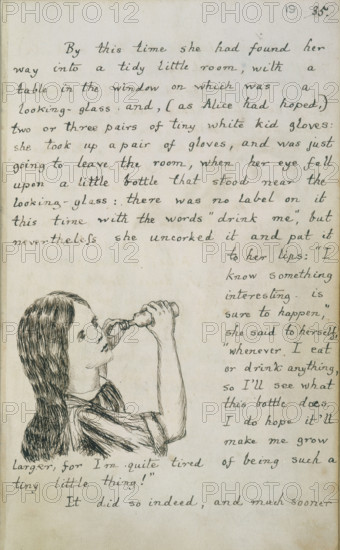 35.
By this time she had found her
way into a tidy little room, with a
table in the window on which was a
looking-glass and, (as Alice had hoped,)
two or three pairs of tiny white kid gloves:
she took up a pair of gloves, and was just
going to leave the room, when her eye fell
upon a little bottle that stood near the
looking-glass: there was no label on it
this time with the words "drink me", but
nevertheless she uncorked it and put it
to her lips: "I
know something
interesting is
sure to happen,"
she said to herself,
"whenever I eat
or drink anything,
so I'll see what
this bottle does.
I do hope it'll
make me grow
larger, for I'm quite tired of being such a
tiny little thing!"
It did so indeed, and much sooner
PHOTO12